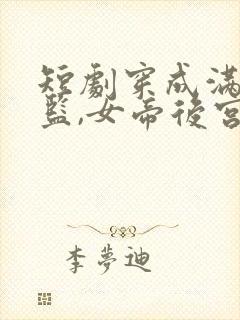 短劇穿成滿
藍,女帝後宮
李夢迪